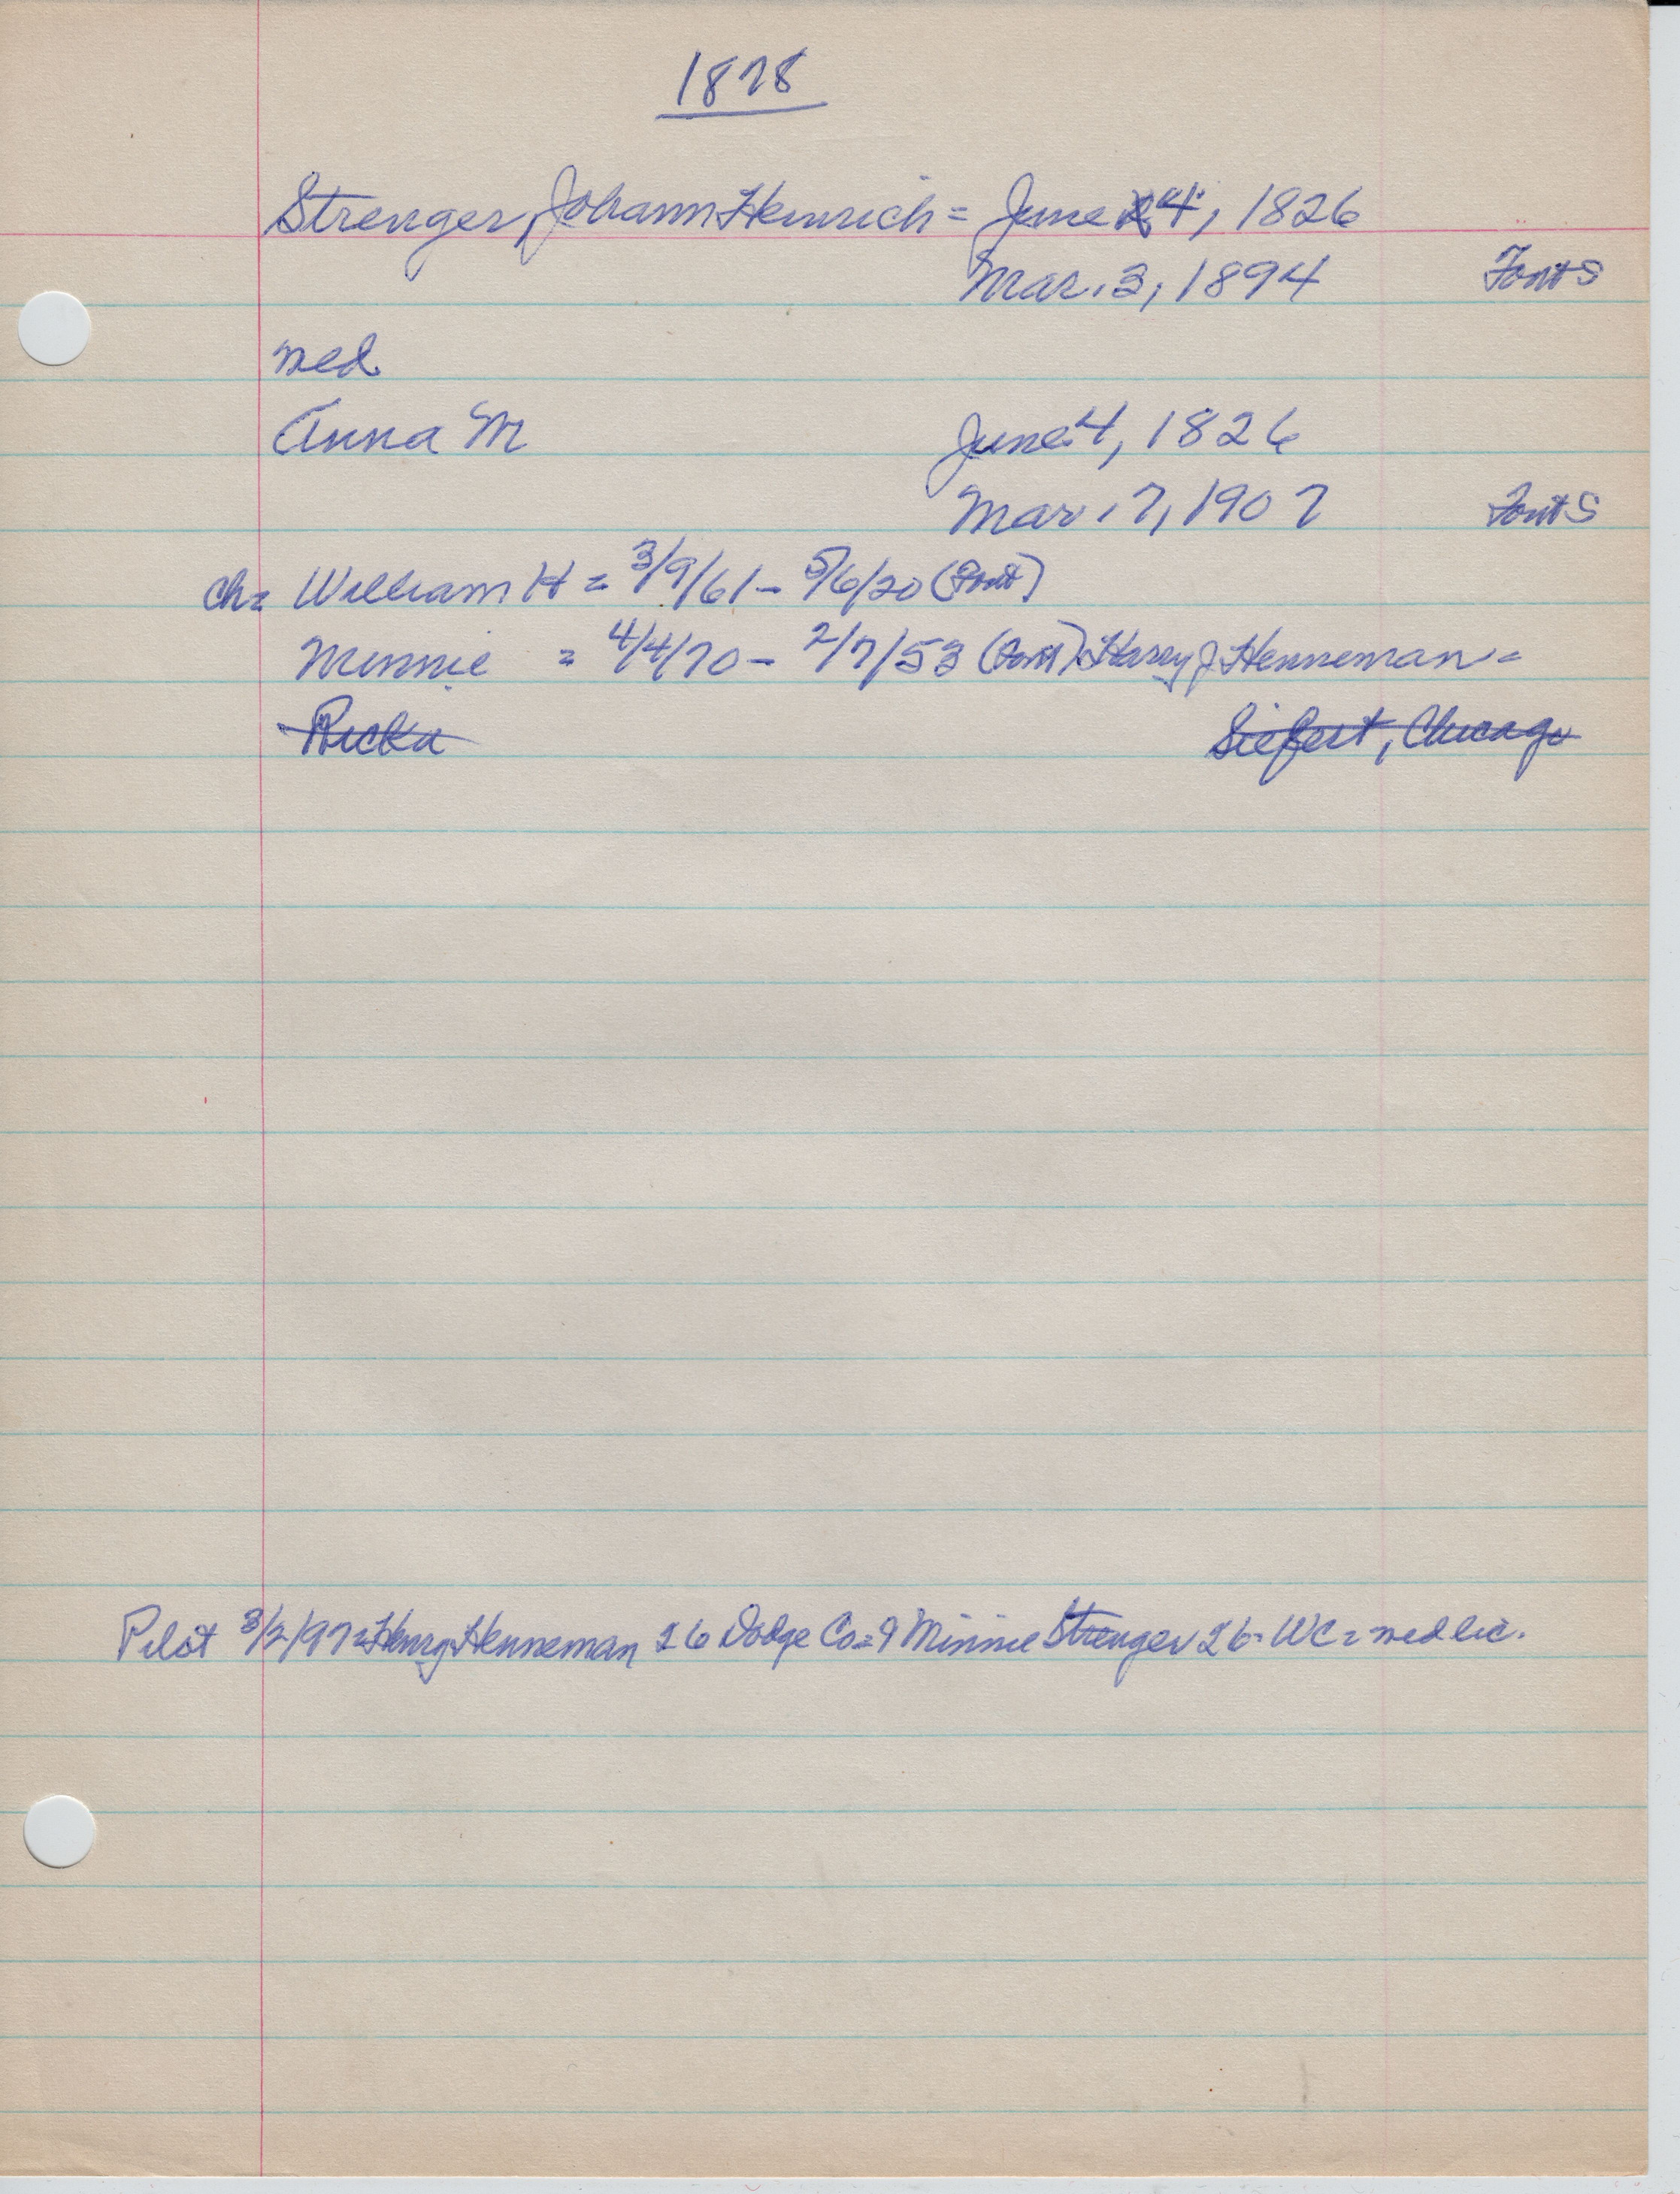 1878
Strenger, Johann Heinrich = June 4, 1826
Mar. 3, 1894 Font S
wed
Anna M June 4, 1826
Mar. 7, 1907 Font S
ch= William H = 3/9/61 - 5/6/20 (Font)
Minnie = 4/4/70 - 2/7/53 (Font) Harry J Henneman =
Ricka Siefert, Chicago
Pilot 3/2/97 = Henry Henneman 26 Dodge Co = 9 Minnie Strenger 26 = WC = wed lic.